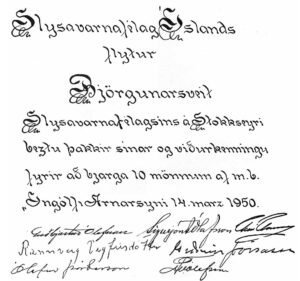 Slysavarnafélag Íslands
flytur
Björgunarsveit
Slysavarnafélagsins á Stokkseyri
beztu þakkir sínar og viðurkenningu
fyrir að bjarga 10 mönnum af m.b.
„Ingólfi Arnarsyni 14. marz 1950.
Guðbjartur Ólafsson Sigurjón Á. Ólafsson
Rannveig Vigfúsdóttir
Ólafur Þórðarson